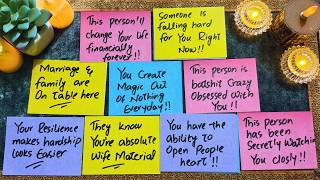 This person'll
change Your life
financially
forever!!
Someone is
falling hard
for You Right
Now!!
Marriage &
family are
On table here
You Create
Magic Out
of Nothing
Everyday!!
This person is
batshit Crazy
Obsessed With
You!!!
Your Resilience
makes hardship
looks Easier
They know
You're absolute
Wife Material
You have the
Ability to
Open People
heart!!
This person
has been
Secretly Watchin
You Closly!!